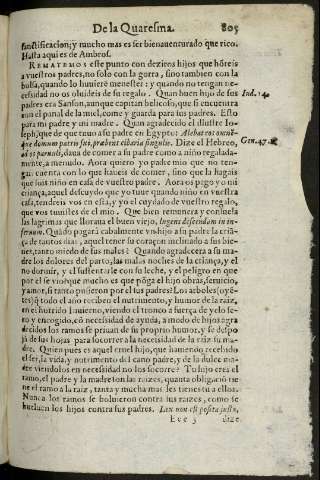 De la Quaresma. 805
sanctificacion; y mucho mas es ser bienauenturado que rico.
Hasta aqui es de Ambros.
REMATEMOS este punto con deziros hijos que hõreis
a vuestros padres, no solo con la gorra, sino tambien con la
bolsa, quando lo huuierẽ menester: y quando no tengan ne-
cessidad no os oluideis de su regalo. Quan buen hijo de sus
padres era Sanson, aunque capitan belicoso, que si encuentra
con el panal de miel, come y guarda para sus padres. Esto
para mi padre y mi madre. Quan agradecido el illustre Io-
seph, de que tuuo a su padre en Egypto: Alebat eos omnẽ-
que domum patris sui, præbens cibaria singulis. Dize el Hebreo,
ad os paruuli, daua de comer a su padre como a niño regalada-
mente, a menudo. Aora quiero yo padre mio que no ten-
gais cuenta con lo que haueis de comer, sino que la hagais
que sois niño en casa de vuestro padre. Aora os pago yo mi
criança, aquel descuydo que yo tuue quando niño en vuestra
casa, tendreis vos en esta, y yo el cuydado de vuestro regalo,
que vos tuuistes de el mio. Que bien remunera y consuela
las lagrimas que lloraua el buen viejo, lugens descendam in in-
fernum. Quãdo pogará cabalmente vn hijo a su padre la criã-
ça de tantos dias, aquel tener su coraçon inclinado a sus bie-
nes, tanto miedo de sus males? Quando agradecera a su ma-
dre los dolores del parto, las malas noches de la criança, y el
no dormir, y el sustentarle con su leche, y el peligro en que
por el se vio? que mucho es que põga el hijo obras, seruicio,
y amor, si tanto pusieron por el sus padres? Los arboles (oye-
tes) q̃ todo el año reciben el nutrimento, y humor de la raiz,
en el frio do Inuierno, viendo el tronco a fuerça de yelo se-
co y encogido, cõ necessidad de ayuda, a modo de hijos agra
decidos los ramos se priuan de su proprio humor, y se despo
jã de sus hojas para socorrer a la necessidad de la raiz su ma-
dre. Quien pues es aquel cruel hijo, que hauiendo recebido
el ser, la vida, y nutrimento del cano padre, y de la dulce ma-
dre viendolos en necessidad no los socorre? Tu hijo eres el
ramo, el padre y la madre son las raizes, quanta obligaciõ tie
ne el ramo a la raiz, tanta y mucha mas les tienes tu a ellos.
Nunca los ramos se boluieron contra sus raizes, como se
bueluen los hijos contra sus padres. Lex non est posita iusto,
Eee 3 dize
Iud. 14.
Gen. 47.